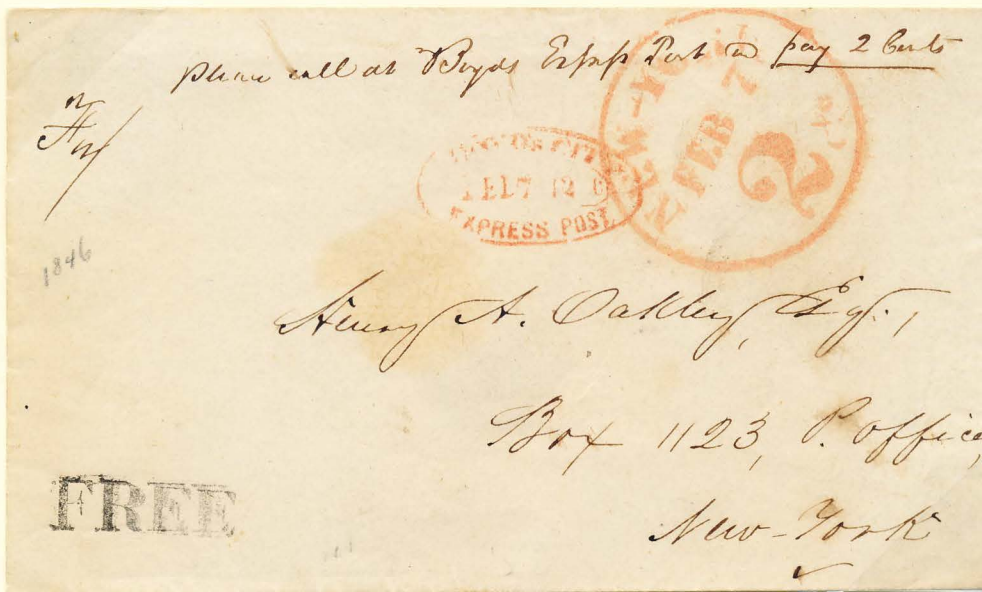 Please call at Boyds Express Post & pay 2 Cents
NEW-YORK
FEB 7
2 cts
BOYD'S CITY
FEB 7 12
EXPRESS POST
1846
Henry A. Oakley, Esq.,
Box 1123, P. Office,
New-York
FREE